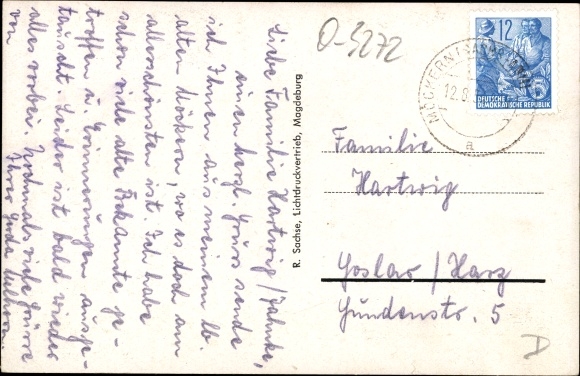 Liebe Familie Hartwig / Jahnke,
einen herzl. Gruss sende
ich Ihnen aus meinem lb.
alten Möckern, wo es doch am
allerschönsten ist. Ich habe
schon viele alte Bekannte ge-
troffen u. Erinnerungen ausge-
tauscht. Leider ist bald wieder
alles vorbei. Nochmals viele Grüsse
von Ihrer
R. Sachse, Lichtdruckvertrieb, Magdeburg
O-3272
12
DEUTSCHE
DEMOKRATISCHE REPUBLIK
MÖCKERN
12.8.
a
Familie
Hartwig
Goslar / Harz
Gundenstr. 5
D